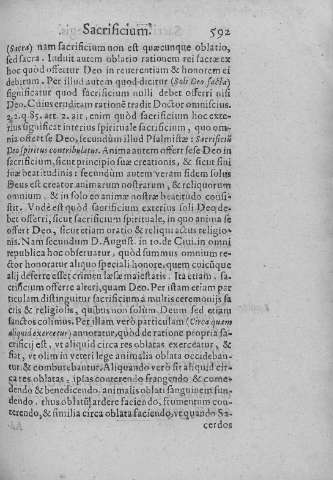 Sacrificium. 592
(Sacra) nam sacrificium non est quæcunque oblatio,
sed sacra. Induit autem oblatio rationem rei sacræ ex
hoc quòd offertur Deo in reuerentiam & honorem ei
debitum. Per illud autem quod dicitur (Soli Deo facta)
significatur quòd sacrificium nulli debet offerri nisi
Deo. Cuius eruditam rationẽ tradit Doctor omniscius.
2.2.q.85. art. 2. ait, enim quòd sacrificium hoc exte-
rius significat interius spirituale sacrificium, quo om-
nis offert se Deo, secundùm illud Psalmistæ: Sacrificiũ
Deo spiritus contribulatus. Anima autem offert sese Deo in
sacrificium, sicut principio suæ creationis, & sicut fini
suæ beatitudinis: secundùm autem veram fidem solus
Deus est creator animarum nostrarum, & reliquorum
omnium, & in solo eo animæ nostræ beatitudo consi-
stit. Vnde est quòd sacrificium exterius soli Deo de-
bet offerri, sicut sacrificium spirituale, in quo anima se
offert Deo, sicut etiam oratio & reliqui actus religio-
nis. Nam secundum D. August. in 10. de Ciui. in omni
republica hoc obseruatur, quòd summus omnium re-
ctor honoratur aliquo speciali honore, quem cuicũque
alij deferre esset crimen læsæ maiestatis. Ita etiam, sa-
crificium offerre alteri, quam Deo. Per istam etiam par-
ticulam distinguitur sacrificium à multis ceremonijs sa
cris & religiosis, quibus non solum Deum sed etiam
sanctos colimus. Per illam verò particulam (Circa quem
aliquid exercetur) annotatur, quòd de ratione propria sa-
crificij est, vt aliquid circa res oblatas exerceatur, &
fiat, vt olim in veteri lege animalia oblata occideban-
tur & comburebantur. Aliquando verò fit aliquid cir-
ca res oblatas, ipsas conterendo frangendo & come-
dendo & benedicendo. animalis oblati sanguinem fun-
dendo. thus oblatũ ardere faciendo, frumentum con-
terendo, & similia circa oblata faciendo, vt quando Sa-
cerdos